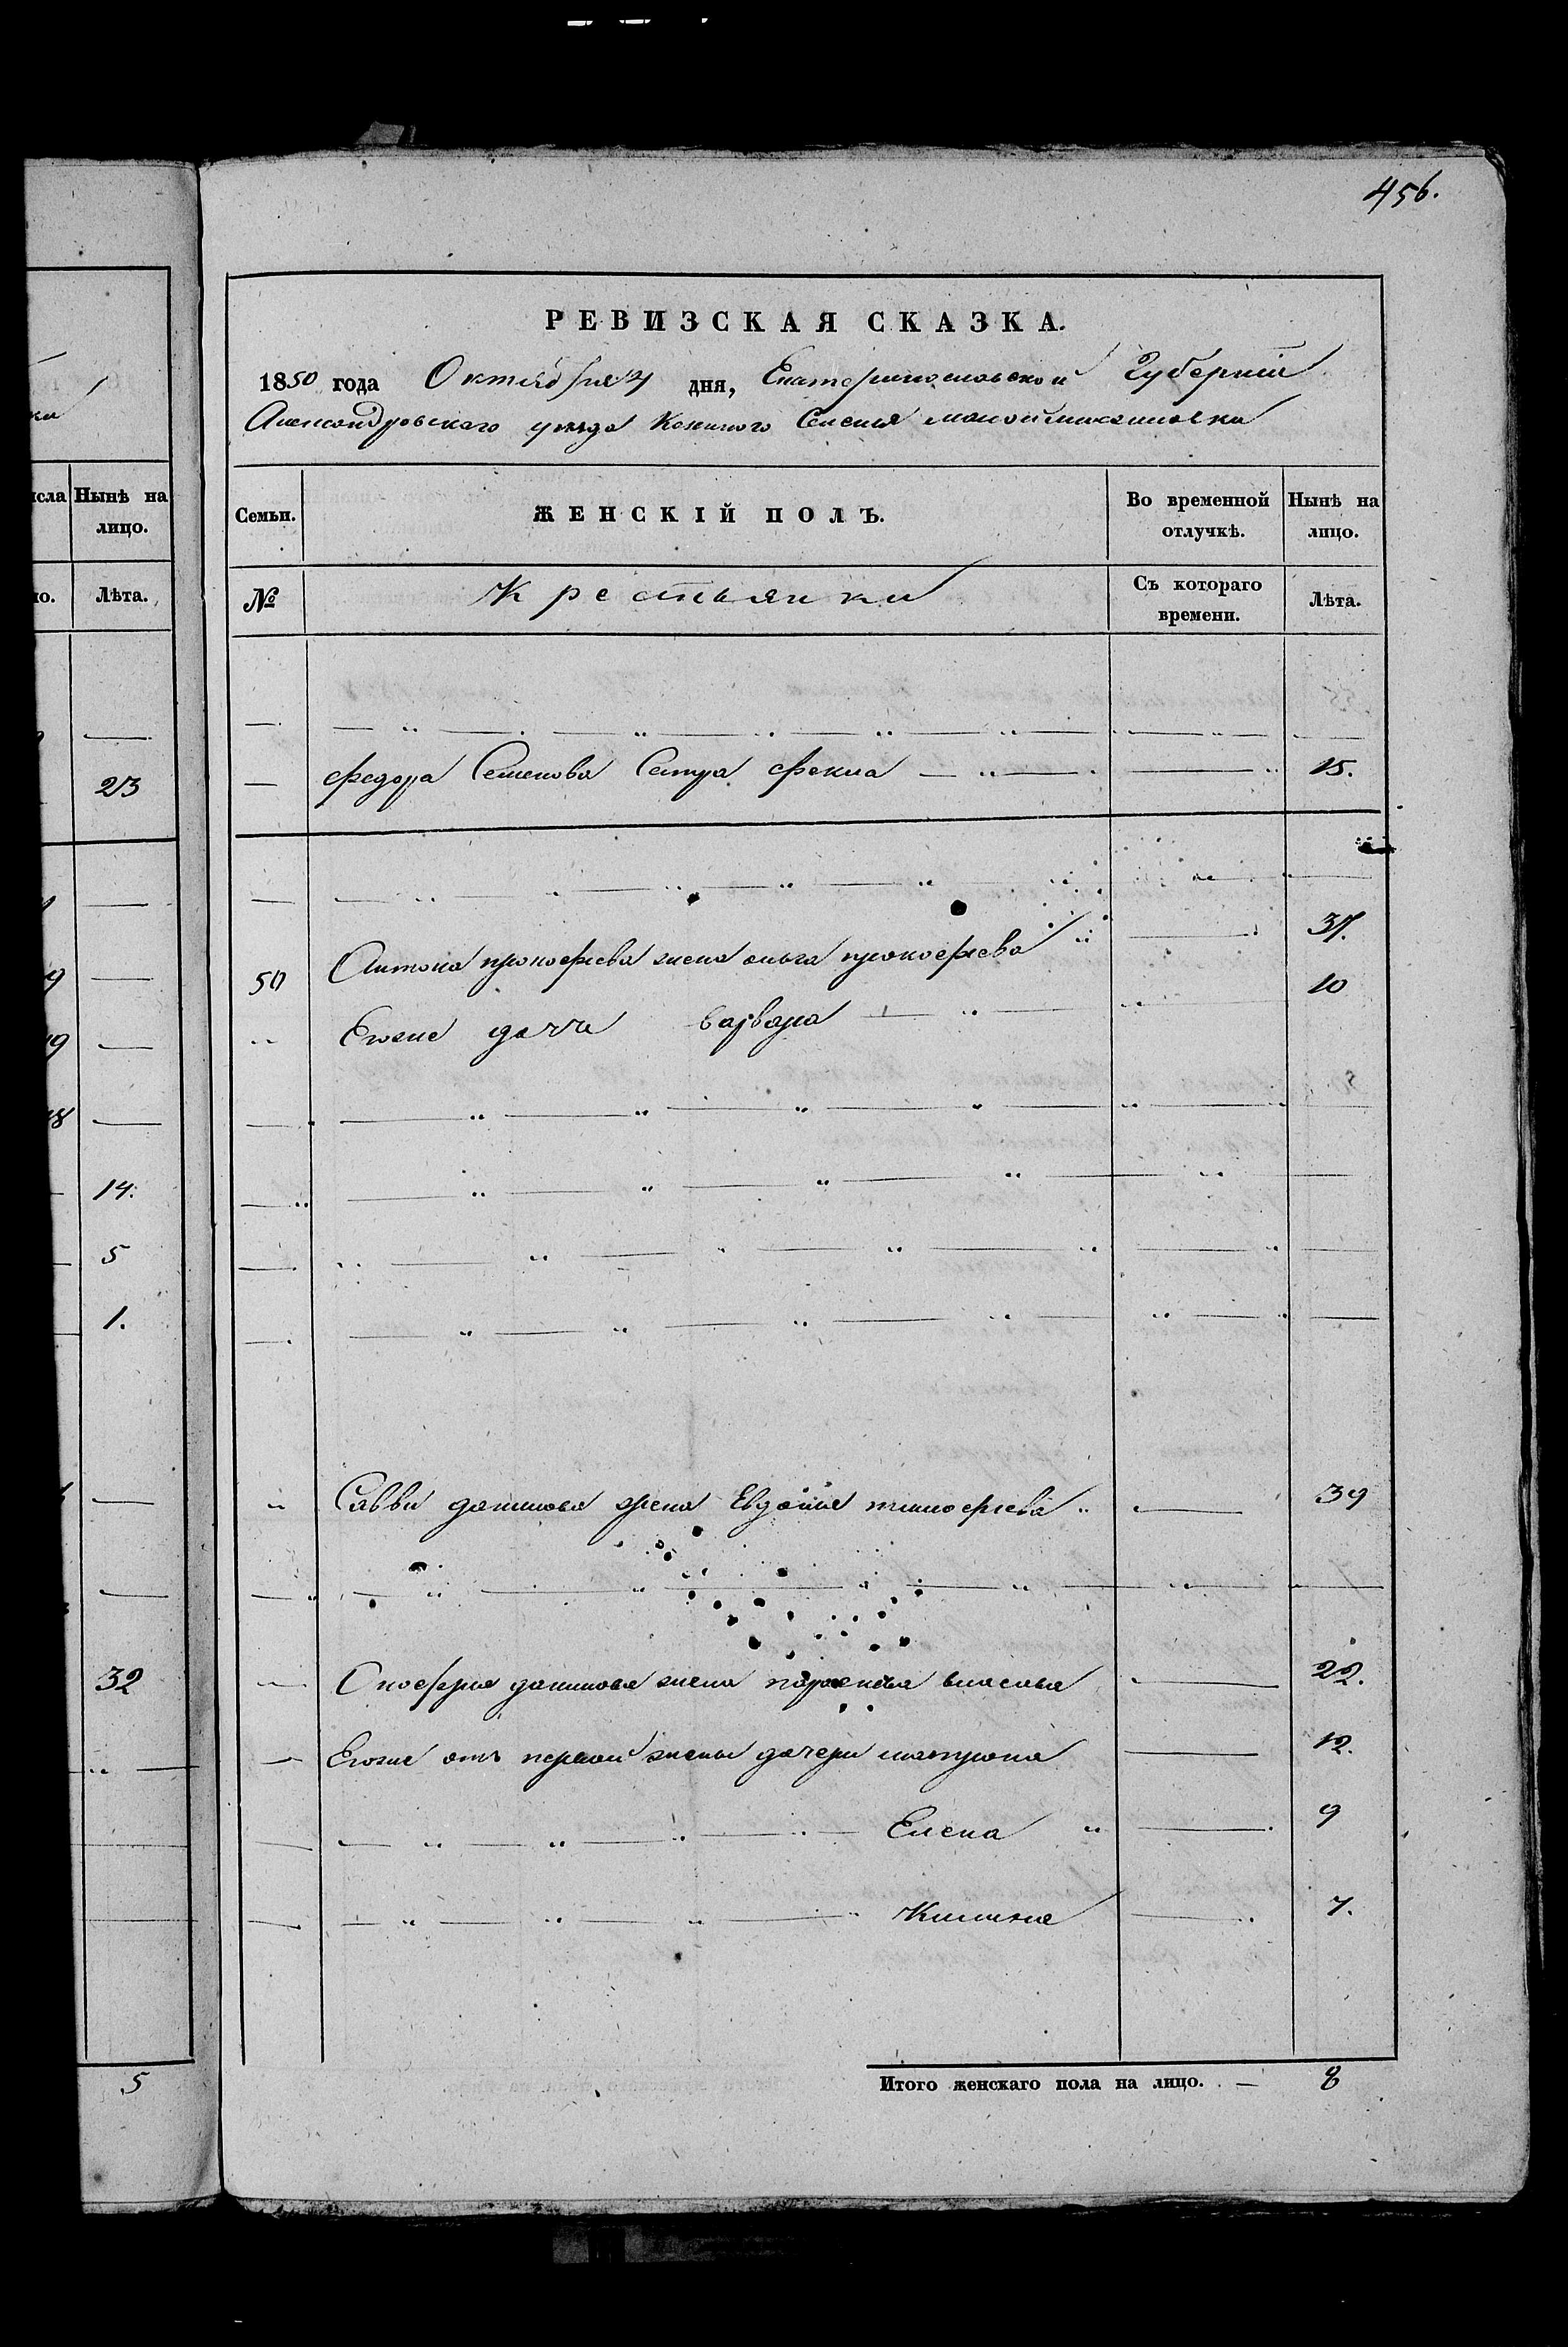 456.
РЕВИЗСКАЯ СКАЗКА.
1850 года Октября 4 дня, Екатеринославской Губернiи
Александровскаго уѣзда Казеннаго Селенiя малой михайловки
Семьи.
ЖЕНСКIЙ ПОЛЪ.
Во временной отлучкѣ.
Нынѣ на лицо.
№
Крестьянки
Съ котораго времени.
Лѣта.
федора Семенова Сестра фекла 15.
50 Антона прокофьева жена ольга прокофьева 37.
Егоже дочь варвара 10
Саввы данилова жена Евдокiя тимофеева 39
Онофрiя данилова жена парасковiя власова 22.
Егоже отъ первой жены дочери матрона 12.
Елена 9
Килина 7.
Итого женскаго пола на лицо. 8
Нынѣ на
лицо.
Лѣта.
23
14.
5
1.
32
5